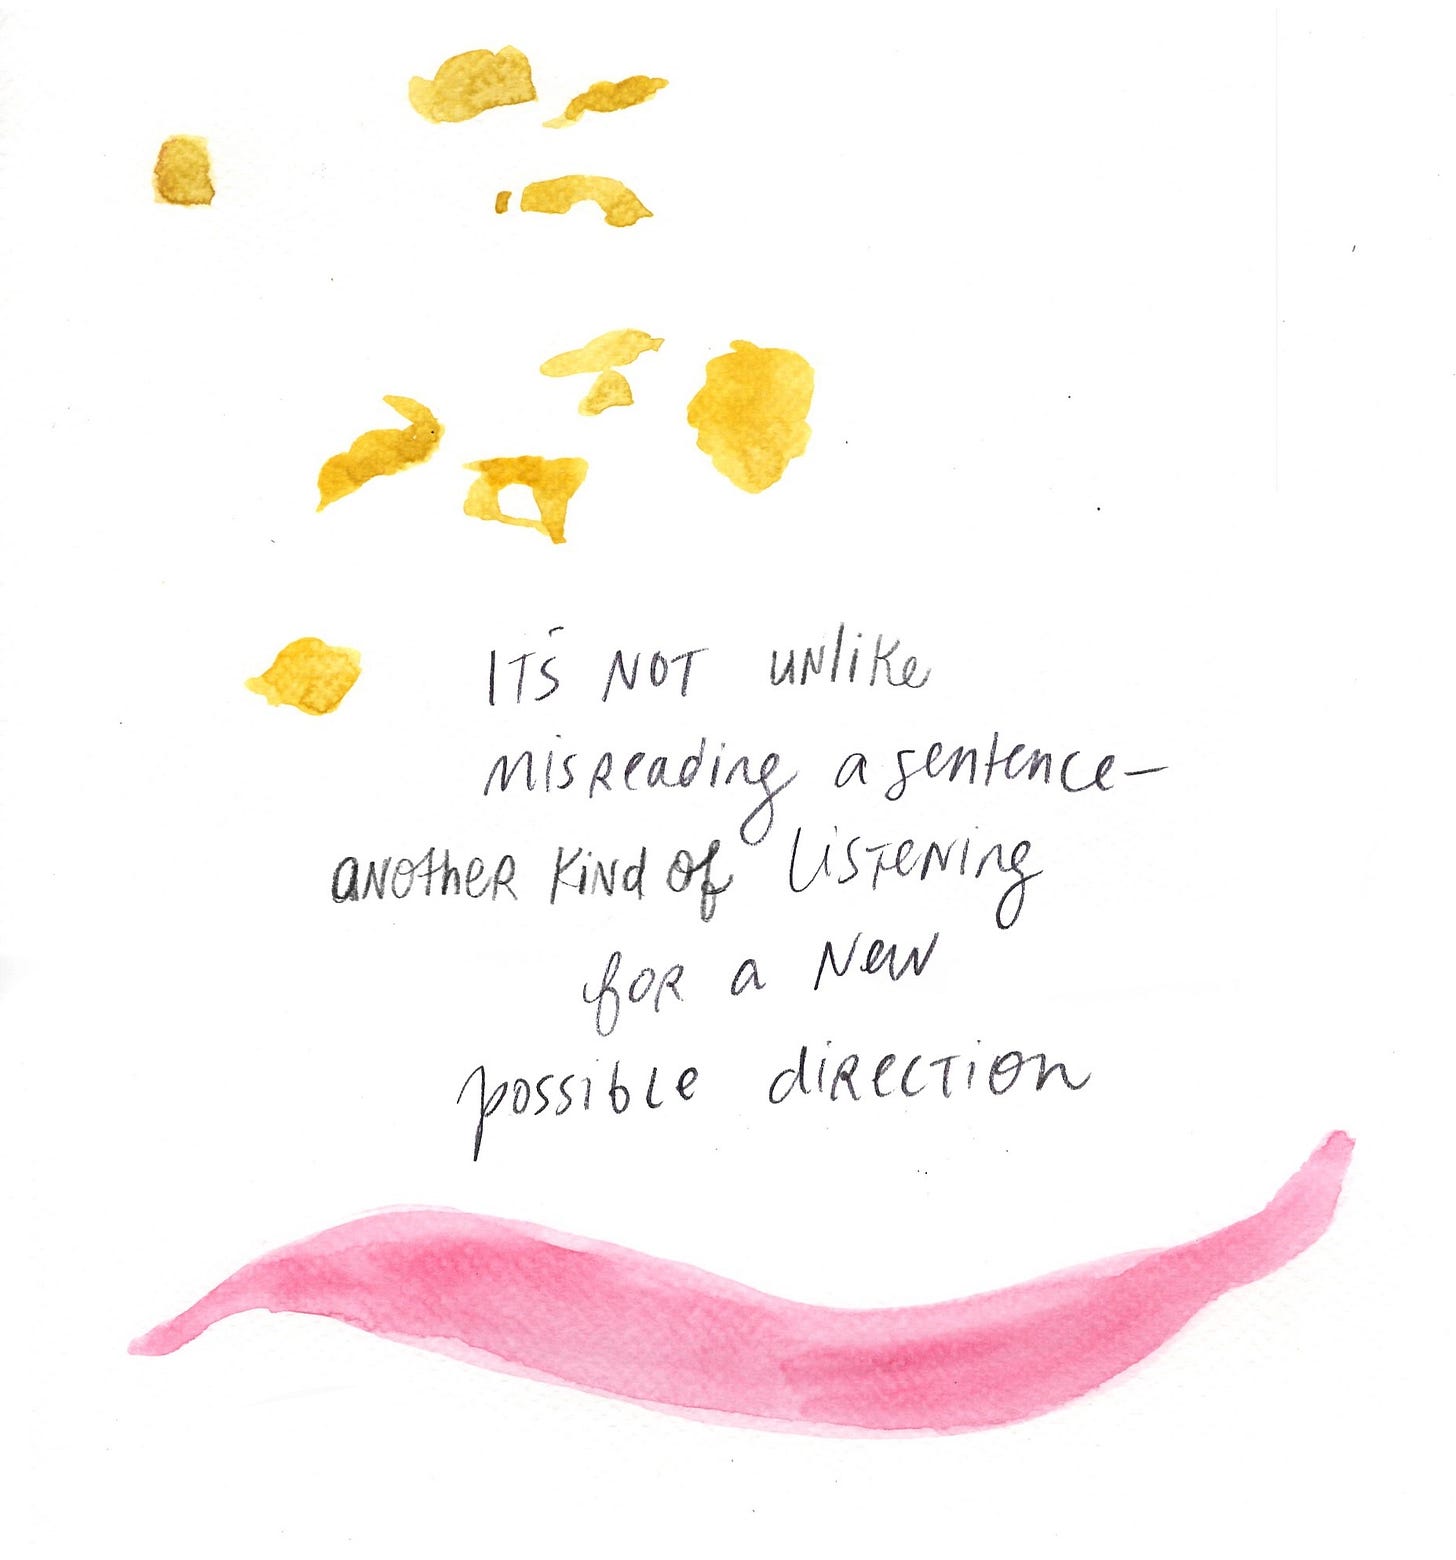 ITS NOT UNlike
misReading a sentence—
aNotheR KiNd of LisTeNing
foR a New
possible diRecTion